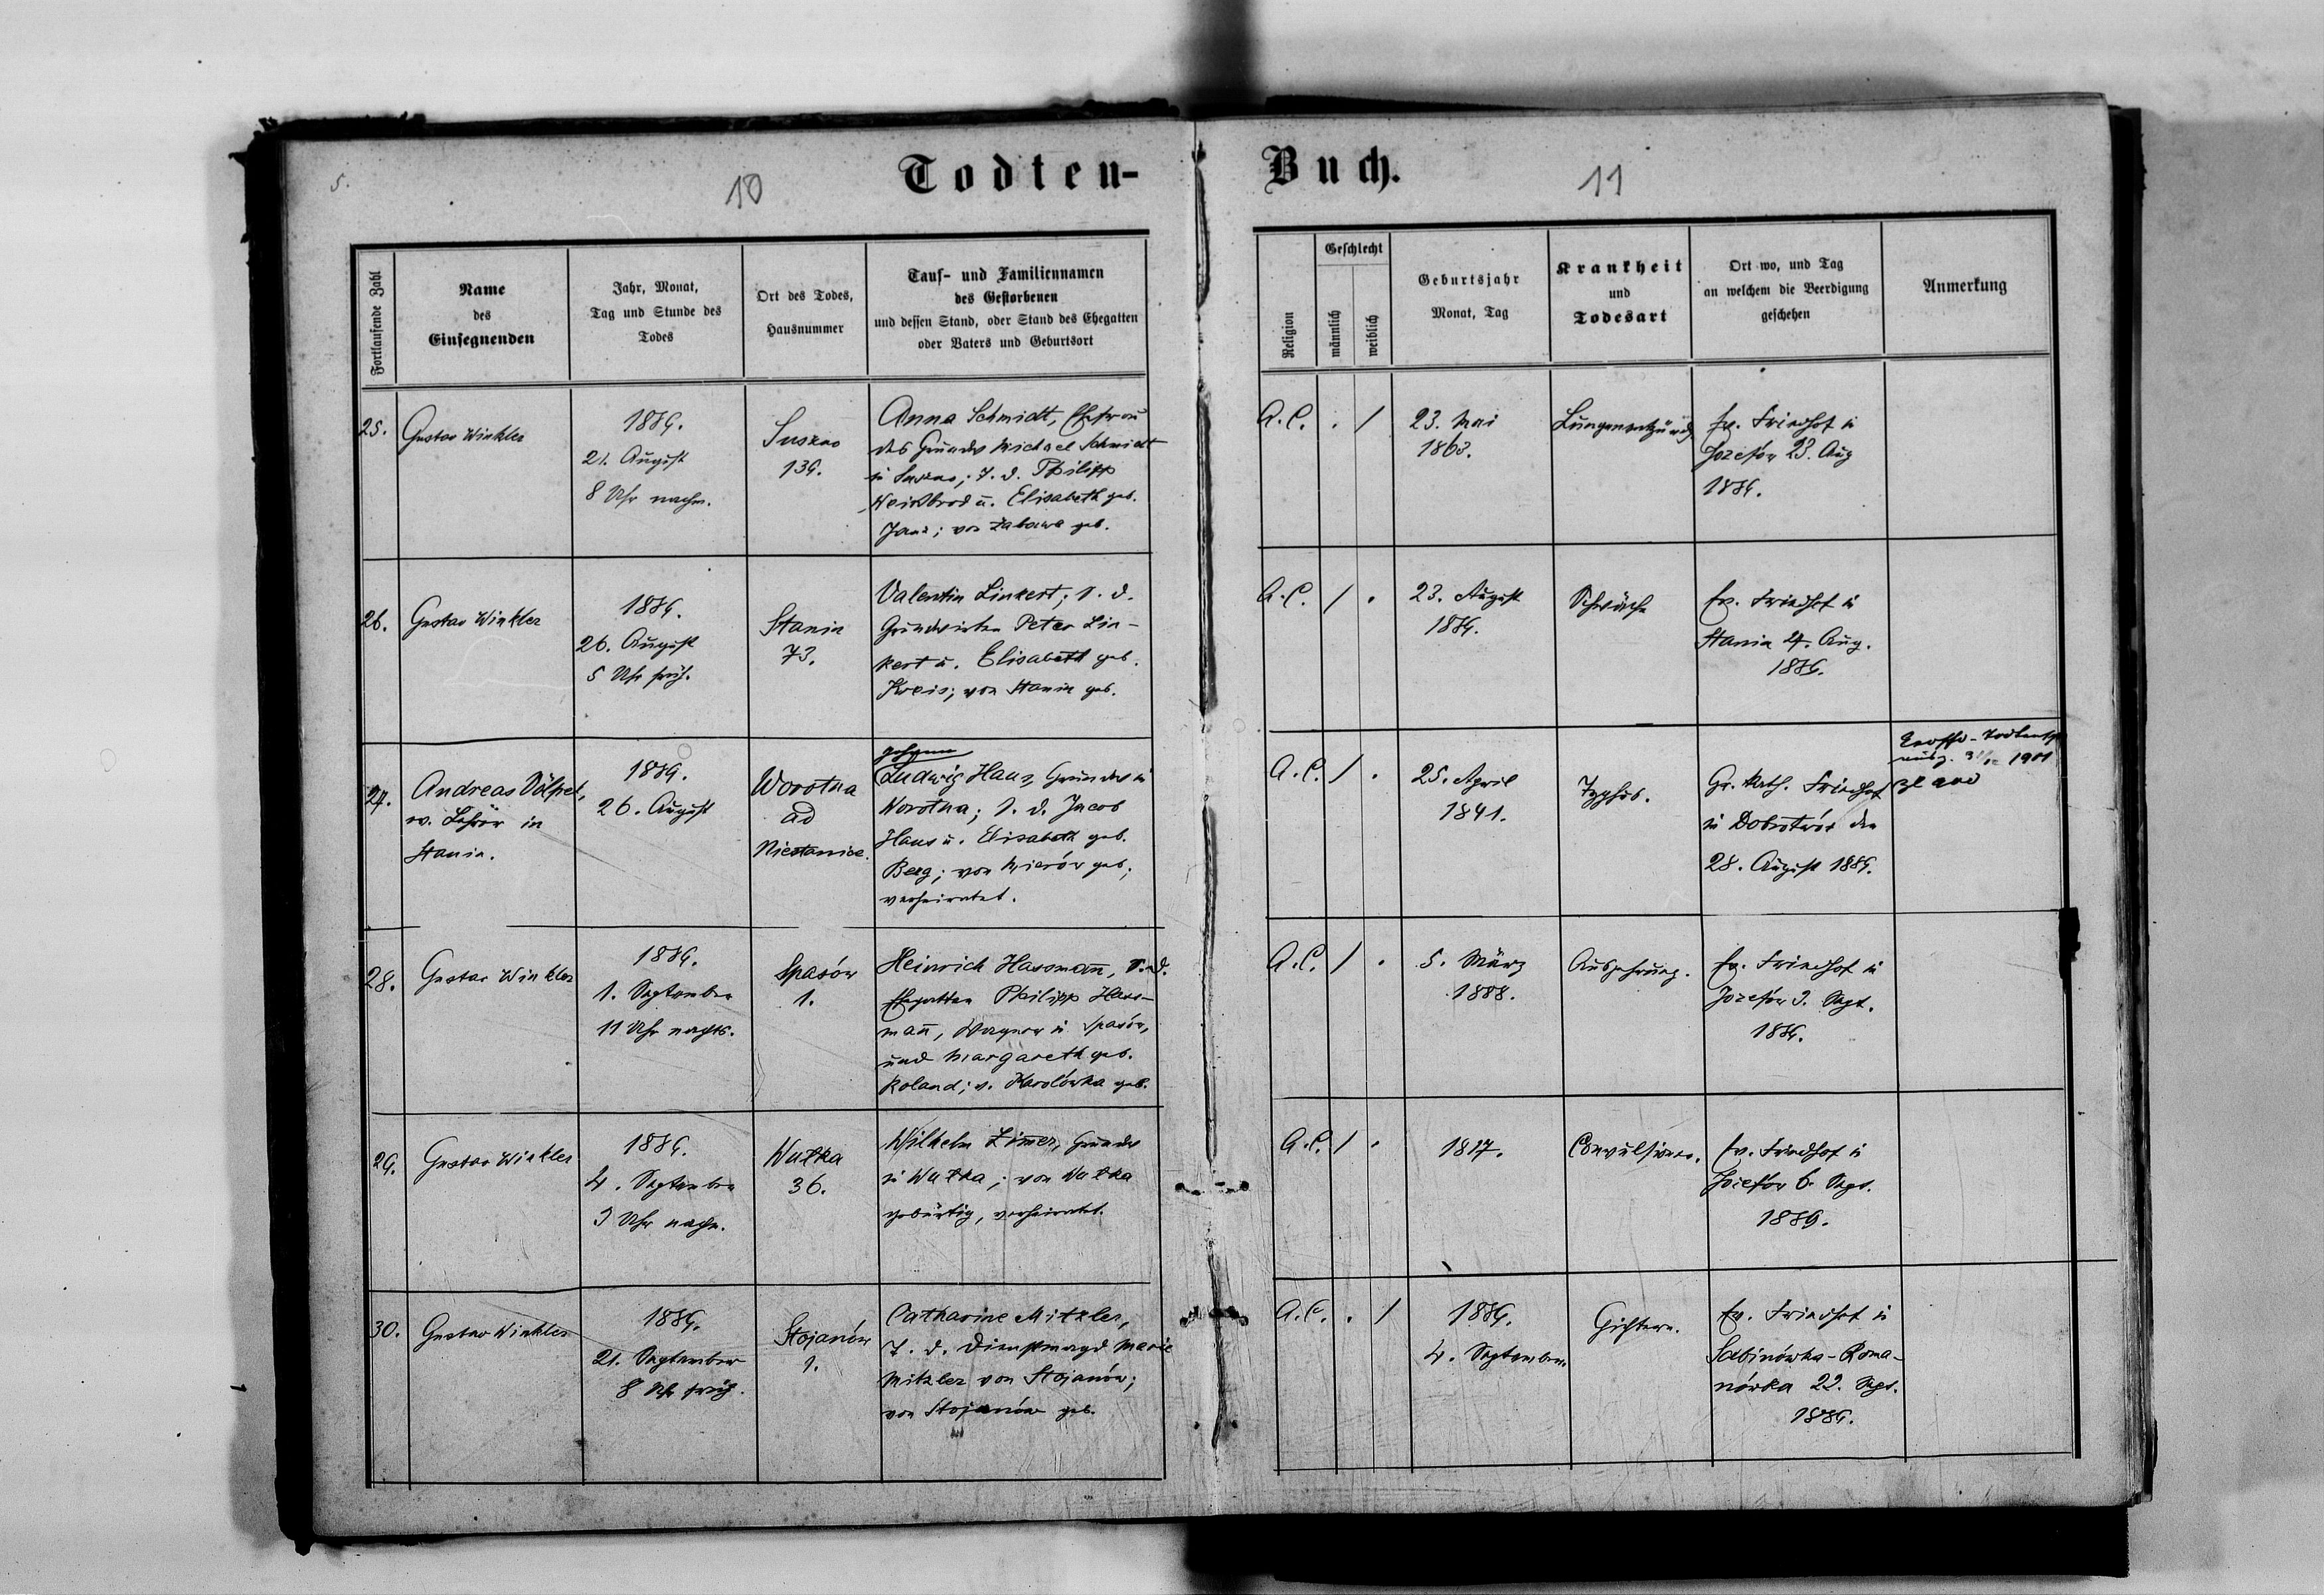 5.
10
Todten-
Buch.
11
Fortlaufende Zahl
Name
des
Einsegnenden
Jahr, Monat,
Tag und Stunde des
Todes
Ort des Todes,
Hausnummer
Tauf- und Familiennamen
des Gestorbenen
und dessen Stand, oder Stand des Ehegatten
oder Vaters und Geburtsort
Religion
Geschlecht
männlich
weiblich
Geburtsjahr
Monat, Tag
Krankheit
und
Todesart
Ort wo, und Tag
an welchem die Beerdigung
geschehen
Anmerkung
25.
Gustav Winkler
1889.
21. August
8 Uhr nachm.
Suszno
139.
Anna Schmidt, Ehefrau
des Grundw. Michael Schmidt
in Suszno; T. d. Philipp
Weissbrod u. Elisabeth geb.
Janz; von Zabawa geb.
A. C.
.
/
23. Mai
1863.
Lungenentzünd
Ev. Friedhof in
Józefów 23. Aug
1889.
26.
Gustav Winkler
1889.
26. August
5 Uhr früh.
Stanin
73.
Valentin Linkert; S. d.
Grundwirten Peter Lin-
kert u. Elisabeth geb.
Kreis; von Stanin geb.
A. C.
/
.
23. August
1889.
Schwäche
Ev. Friedhof in
Stanin 27. Aug.
1889.
27.
Andreas Völpel,
ev. Lehrer in
Stanin.
1889.
26. August
Worotna
ad
Niestanice.
Johann
Ludwig Haus, Grundw. in
Worotna; S. d. Jacob
Haus u. Elisabeth geb.
Berg; von Mierów geb.;
verheiratet.
A. C.
/
.
25. April
1841.
Typhus.
Gr. kath. Friedhof
in Dobrotwór den
28. August 1889.
1901
Zl 200
28.
Gustav Winkler
1889.
1. September
11 Uhr nachts.
Spasów
1.
Heinrich Hassmann, S. d.
Ehegatten Philipp Hass-
mann, Wagner in Spasów,
und Margareth geb.
Roland; v. Karolówka geb.
A. C.
/
.
5. März
1888.
Auszehrung.
Ev. Friedhof in
Józefów 3. Sept.
1889.
29.
Gustav Winkler
1889.
4. September
3 Uhr nachm.
Wulka
36.
Wilhelm Zimer, Grundw
in Wulka; von Wulka
gebürtig, verheiratet.
A. C.
/
.
1817.
Convulsionen.
Ev. Friedhof in
Józefów 6. Sept.
1889.
30.
Gustav Winkler
1889.
21. September
8 Uhr früh.
Stojanów
1.
Catharine Mitzler,
T. d. Dienstmagd Marie
Mitzler von Stojanów;
von Stojanów geb.
A. C.
.
/
1889.
4. September
Gichtern.
Ev. Friedhof in
Sabinówka-Roma-
nówka 22. Sept.
1889.